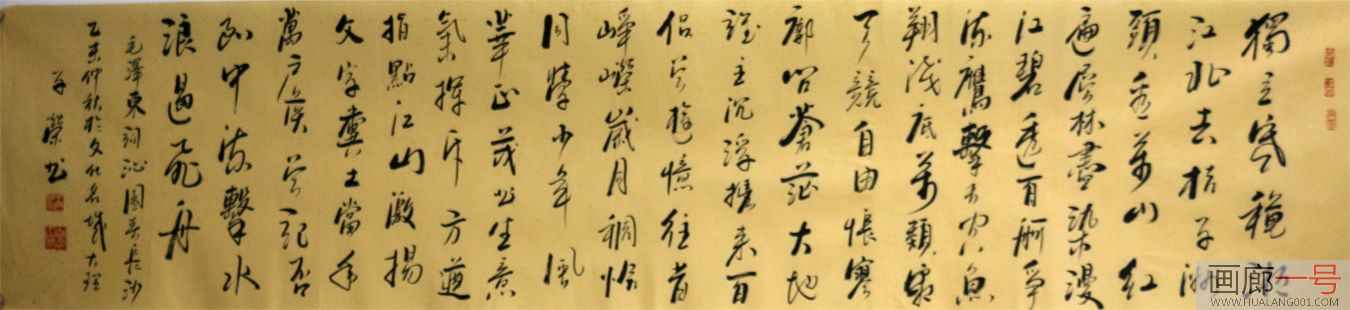 獨立寒穐湘
江北去桔子洲
頭看萬山紅
遍層林盡染漫
江碧透百舸爭
流鷹擊長空魚
翔淺底萬類霜
天競自由悵寥
廓問蒼茫大地
誰主沉浮攜來百
侶曾遊憶往昔
崢嶸歲月稠恰
同學少年風
華正茂書生意
氣揮斥方遒
指點江山激揚
文字糞土當年
萬户侯曾記否
到中流擊水
浪遏飛舟
毛澤東詞沁園春長沙
乙未仲秋於文化名城大理
榮书
画廊一号
WWW.HUALANG001.COM